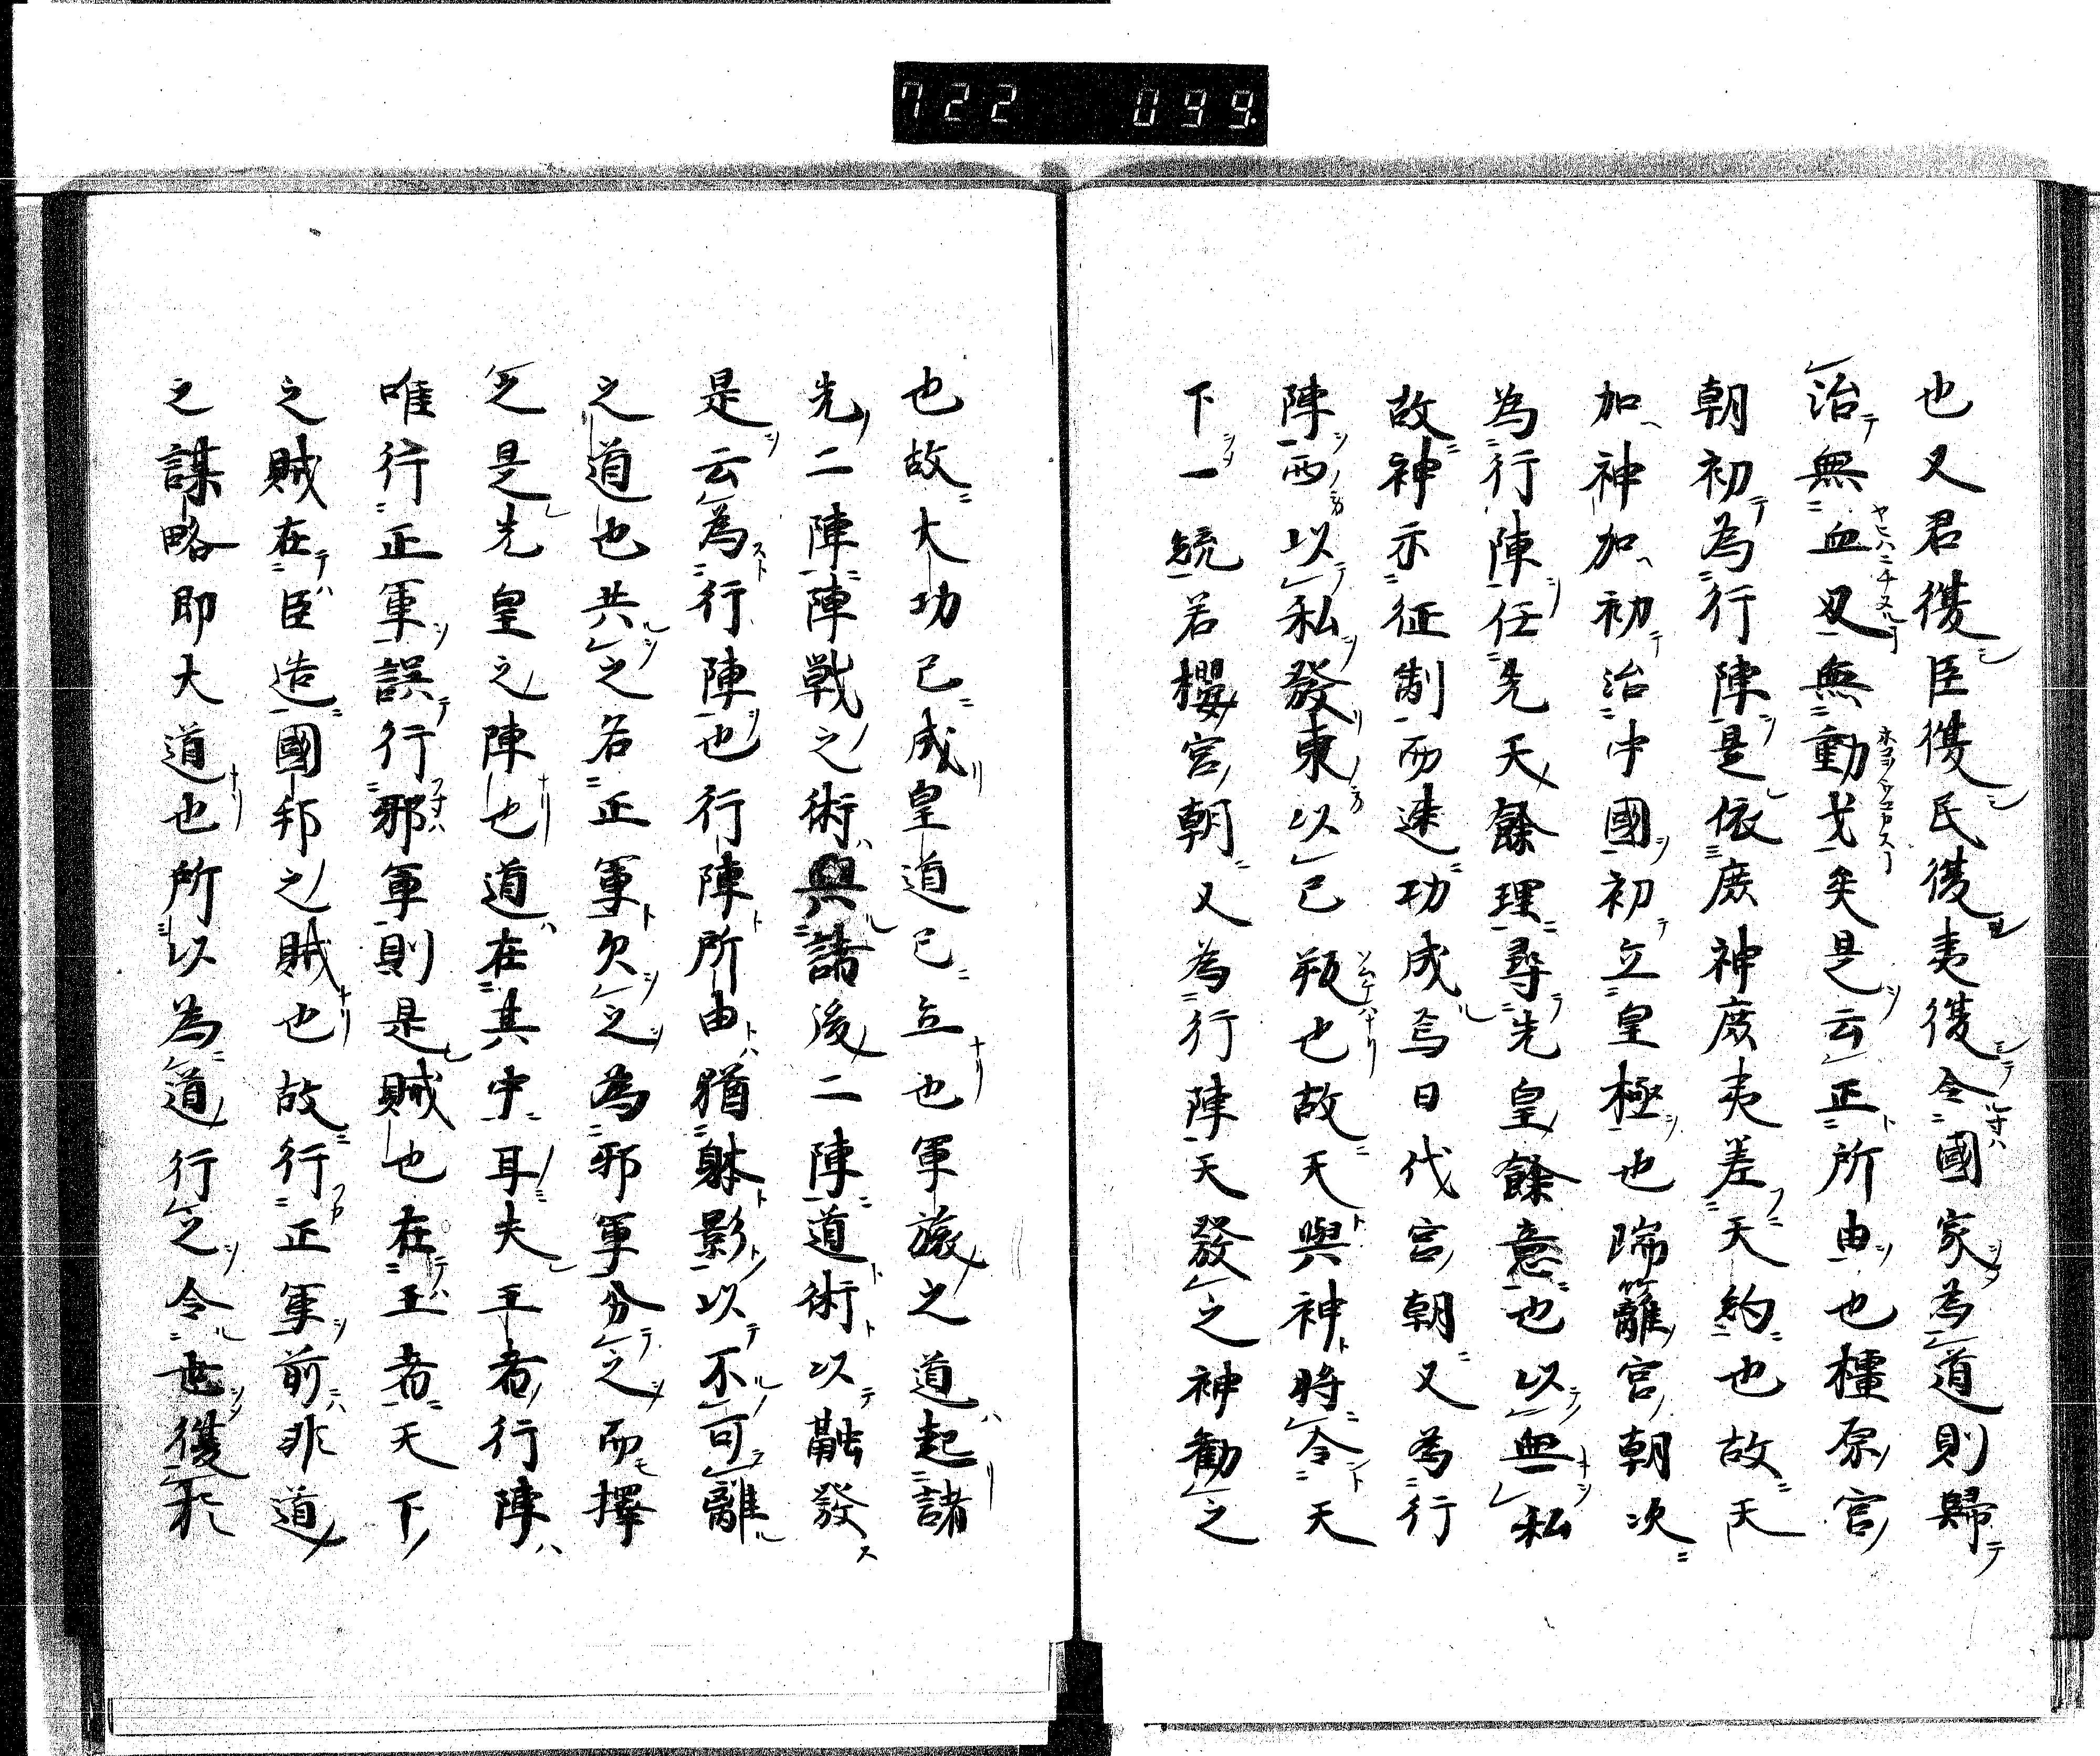 722 099
也又君獲臣獲民獲夷獲令國家為道則歸
治無血刄無動戈矣是云正所由也橿原宮
朝初為行陣是依庶神庶夷差天約也故天
加神加初治中國初立皇極也瑞籬宮朝次
為行陣任先天餘理尋先皇餘意也以無私
故神示征制而速功成焉日代宮朝又為行
陣西以私發東以已叛也故天與神將令天
下一統若櫻宮朝又為行陣天發之神勸之
也故大功已成皇道已立也軍旅之道起諸
先二陣陣戰之術與諸後二陣道術以融發
是云為行陣也行陣所由猶躰影以不可離
之道也共之名正軍欠之為邪軍分之而擇
之是先皇之陣也道在其中耳夫王者行陣
唯行正軍誤行邪軍則是賊也在王者天下
之賊在臣造國邦之賊也故行正軍前非道
之謀略即大道也所以為道行之令世獲於